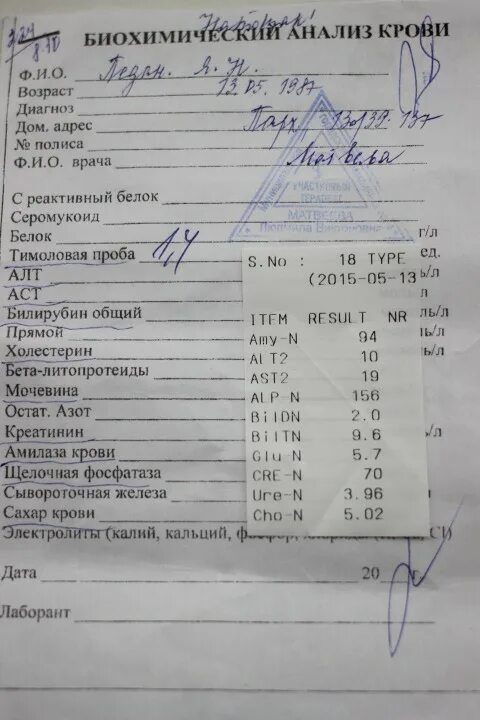 Натощак!
324
8.10
БИОХИМИЧЕСКИЙ АНАЛИЗ КРОВИ
Ф.И.О.
Возраст 13.05.1987
Диагноз
Дом. адрес Парх 13 039-137
№ полиса
Ф.И.О. врача Матвеева
УЧАСТКОВЫЙ
ТЕРАПЕВТ
МАТВЕЕВА
Людмила Викторовна
С реактивный белок
Серомукоид
Белок г/л
Тимоловая проба 1,4 ед.
АЛТ ь/л
АСТ л
Билирубин общий ль/л
Прямой ль/л
Холестерин ь/л
Бета-литопротеиды
Мочевина
Остат. Азот
Креатинин ь/л
Амилаза крови
Щелочная фосфатаза
Сывороточная железа
Сахар крови
Электролиты (калий, кальций, фосфор, Cl)
S.No : 18 TYPE
(2015-05-13
ITEM RESULT NR
Amy-N 94
ALT2 10
AST2 19
ALP-N 156
BilDN 2.0
BilTN 9.6
Glu-N 5.7
CRE-N 70
Ure-N 3.96
Cho-N 5.02
Дата 20 г.
Лаборант